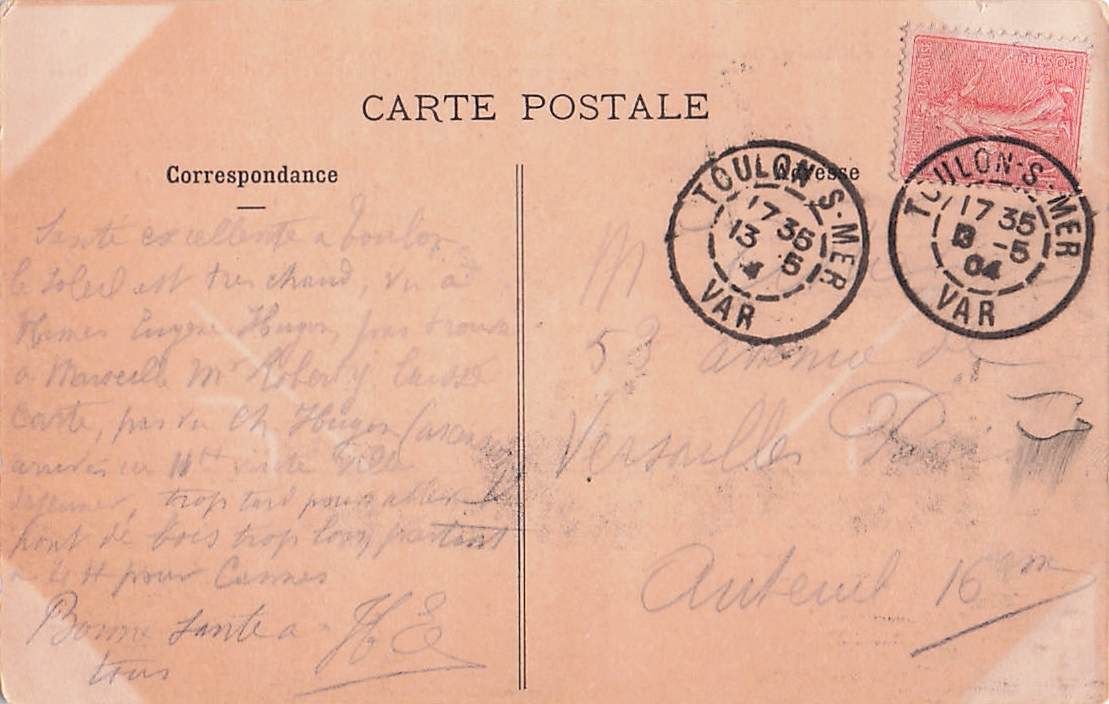 CARTE POSTALE
Correspondance
Adresse
TOULON-S-MER
17 35
13 5
4
VAR
TOULON-S-MER
17 35
13 -5
04
VAR
Santé excellente a Toulon
le soleil est tres chaud, vu à
Eugène Hugon, pas trouvé
a Marseille Mr laissé
carte, pas vu Ch Hugon
en 11H visite Ville
trop tard pour aller
pont de bois trop loin partant
a 4H pour Cannes
Bonne santé a
tous
HE
M
53 avenue de
Versailles Paris
Auteuil 16em